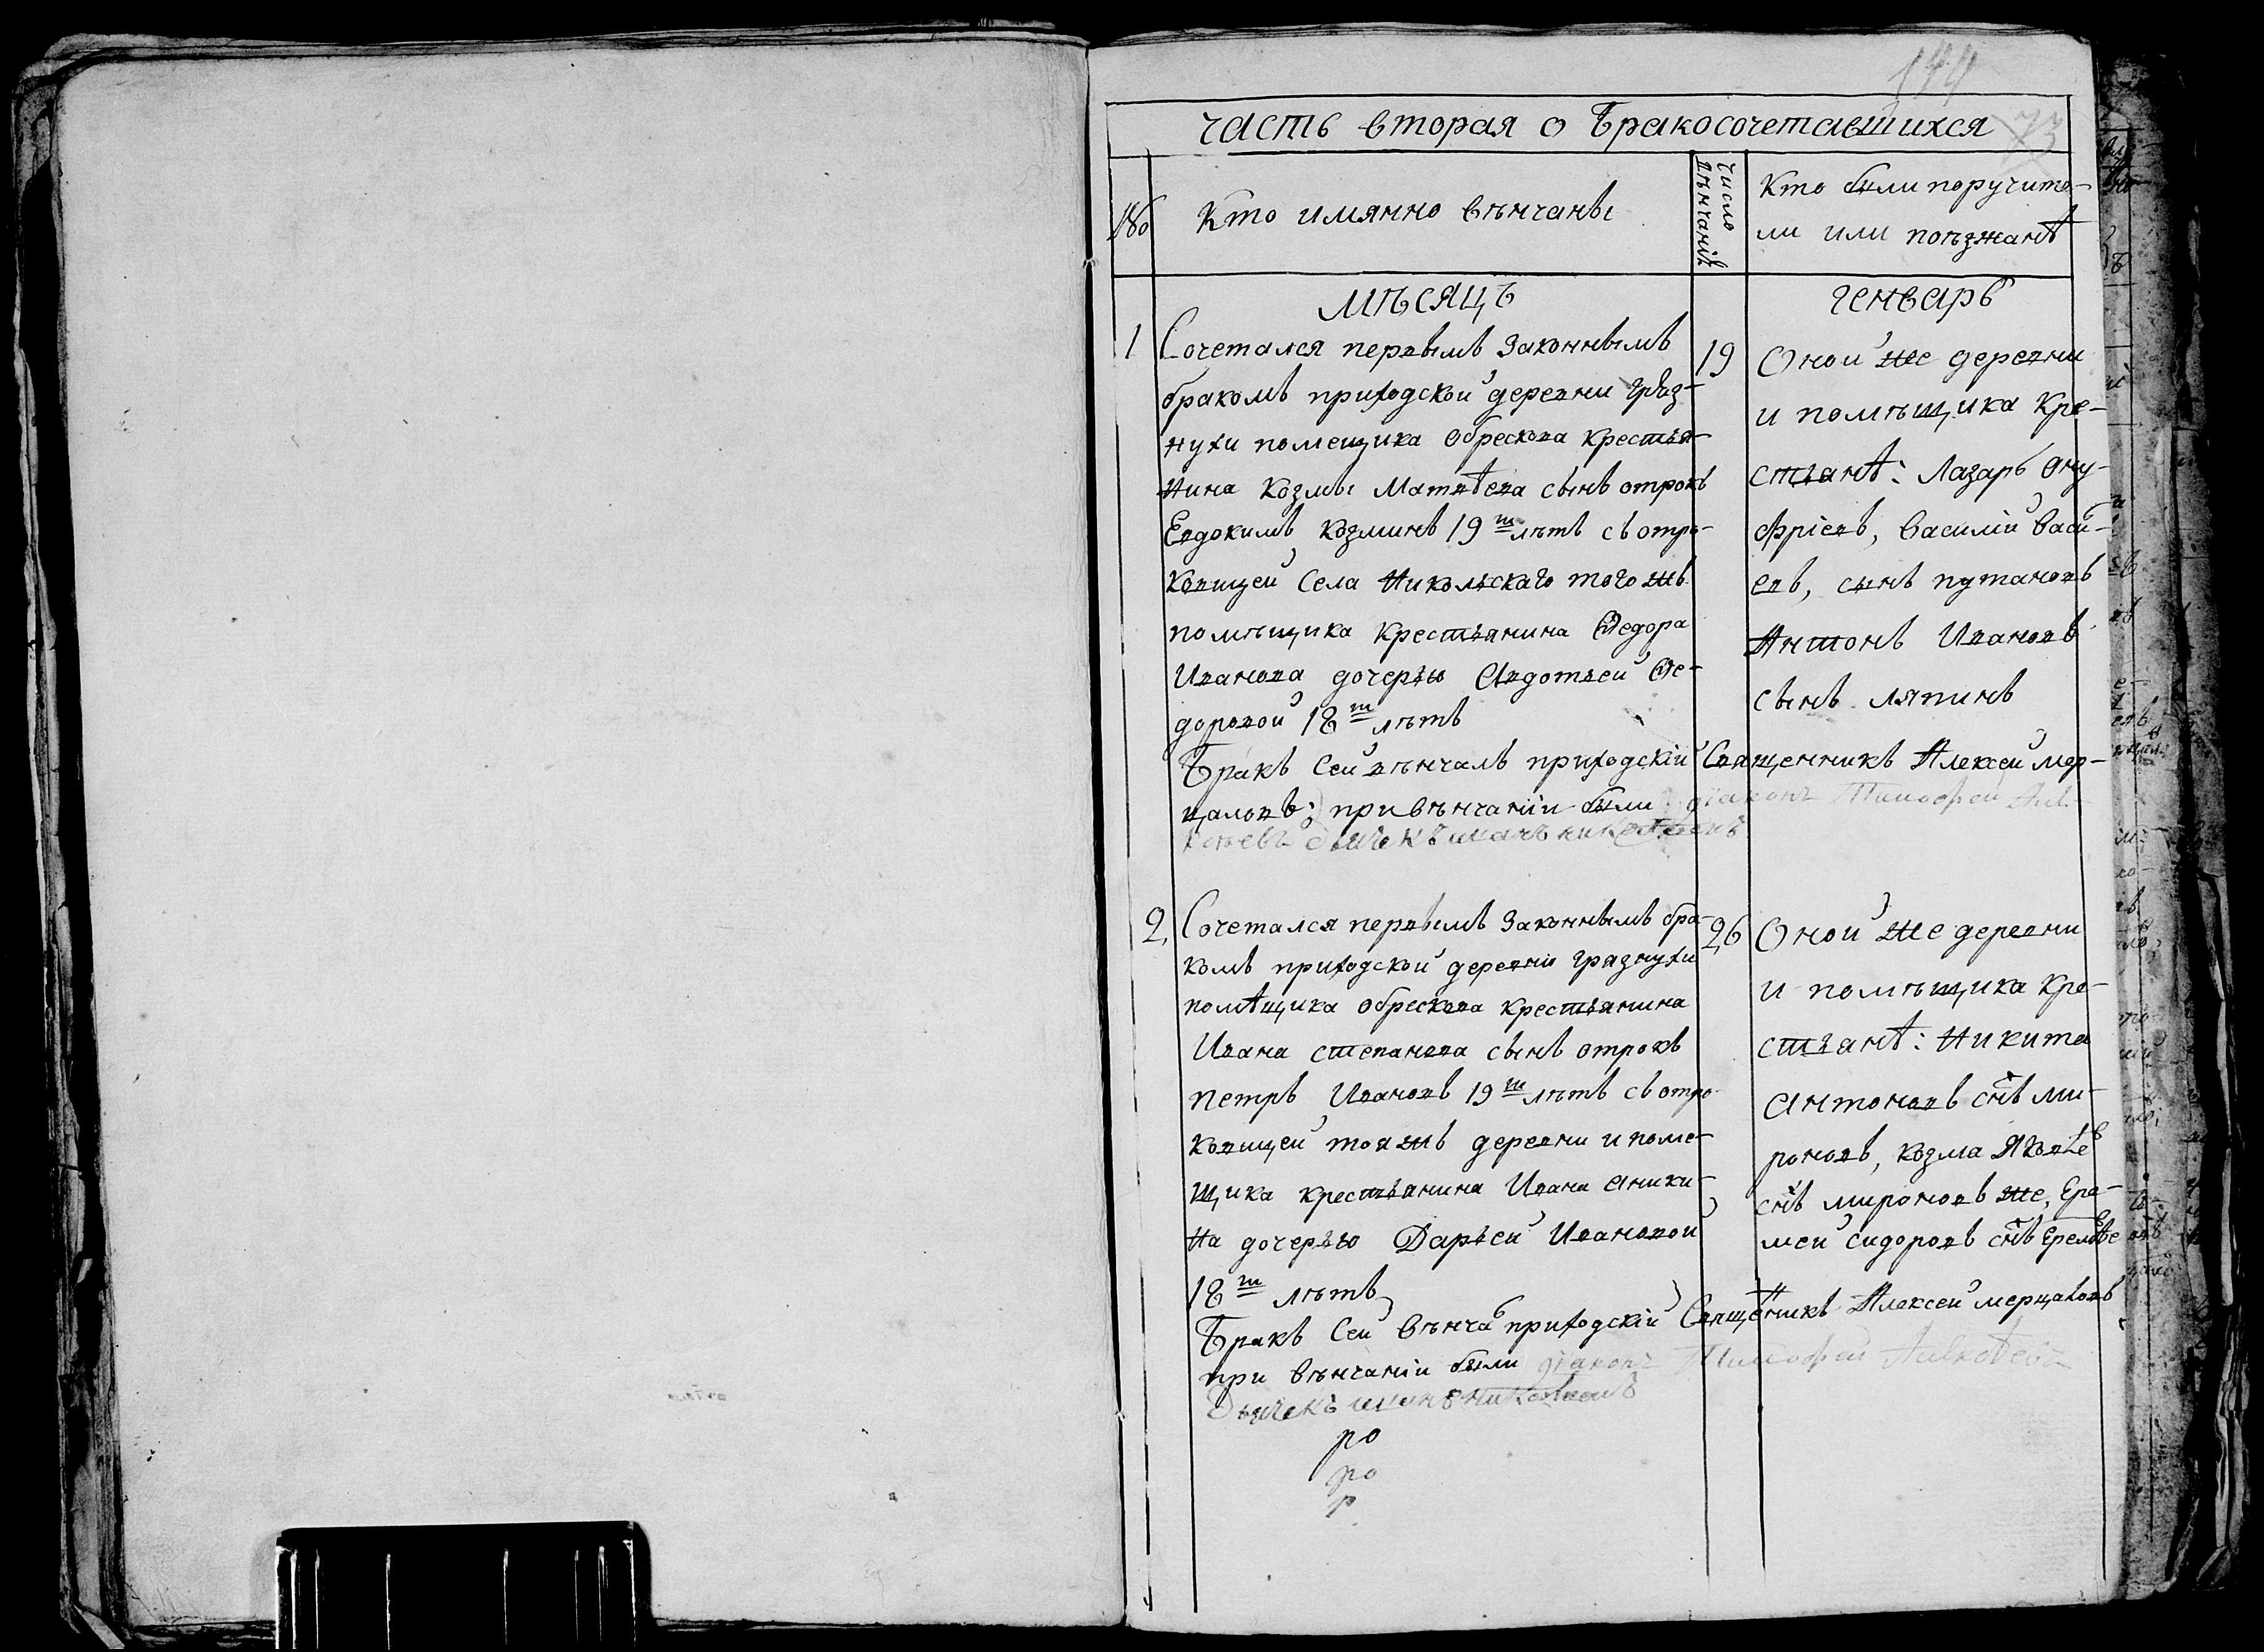 144
73
часть вторая о Бракосочетавшихся
№
Кто имянно венчаны
Число венчанія
Кто были поручите-
ли или поѣзжанѣ
Мѣсяцъ
генварь
1
Сочетался первымъ Законнымъ
бракомъ приходской деревни Гряз-
нухи помещика обрескова крестья-
нина Козмы Матвѣева сынъ отрокъ
Евдокимъ Козминъ 19ти лѣтъ съ отро-
ковицей Села Никольскаго того жъ
помѣщика крестьянина Федора
Иванова дочерью Авдотьей Фе-
доровой 18ти лѣтъ
19
Оной же деревни
и помѣщика Кре-
стьянѣ: Лазарь Ону-
фріевъ, Василій Васи-
евъ, сынъ путановъ
Антонъ Ивановъ
сынъ ляпинъ
Бракъ Сей вѣнчалъ приходскій Священникъ Алексей Мер-
цаловъ; при вѣнчаніи были діаконъ Тимофей
2
Сочетался первымъ Законнымъ бра-
комъ приходской деревни грязнухи
помѣщика обрескова крестьянина
Ивана степанова сынъ отрокъ
петръ Ивановъ 19ти лѣтъ съ отро-
ковицей тояжъ деревни и поме-
щика крестьянина Ивана аники-
на дочерью Дарьей Ивановой
18ти лѣтъ
26
Оной же деревни
и помѣщика Кре-
стьянѣ: Никита
антоновъ снъ ми-
роновъ, козма Яковлевъ
снъ мироновъ же, Ере-
мей сидоровъ снъ Еремѣевъ
Бракъ Сей Вѣнчалъ приходскій Священникъ Алексей мерцаловъ
при вѣнчаніи были діаконъ Тимофей
Дьячекъ
ро
ро
р